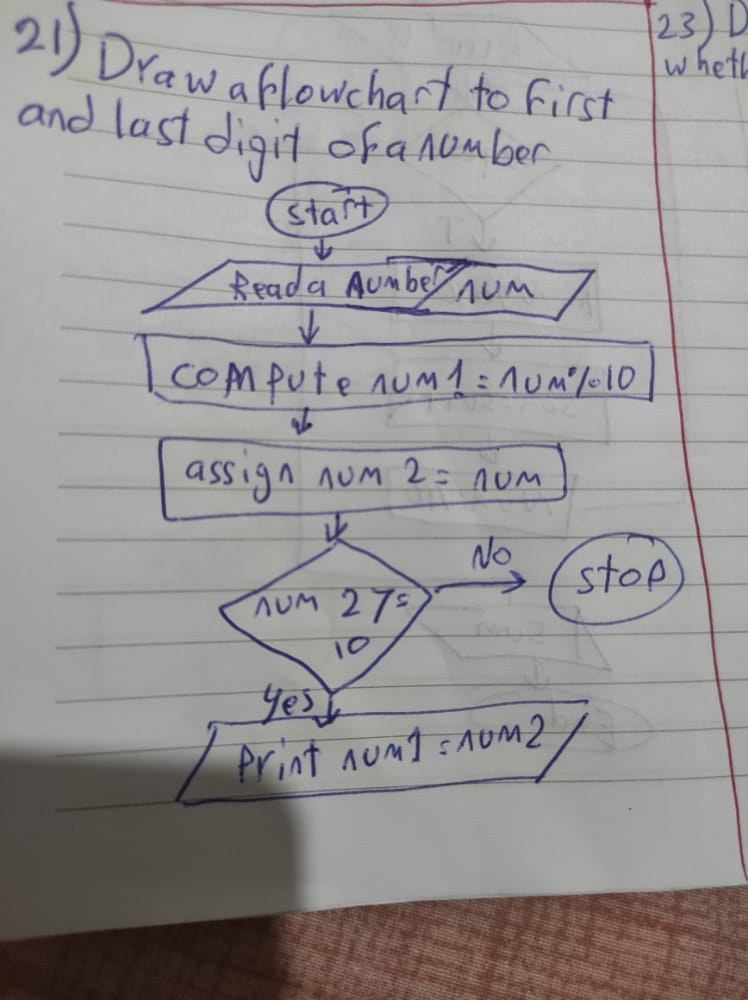 21) Draw a flowchart to first
and last digit of a number
start
Read a number num
compute num1 = num%10
assign num 2 = num
num 2 7=
10
No
stop
Yes
Print num1 = num2
23) D
wheth